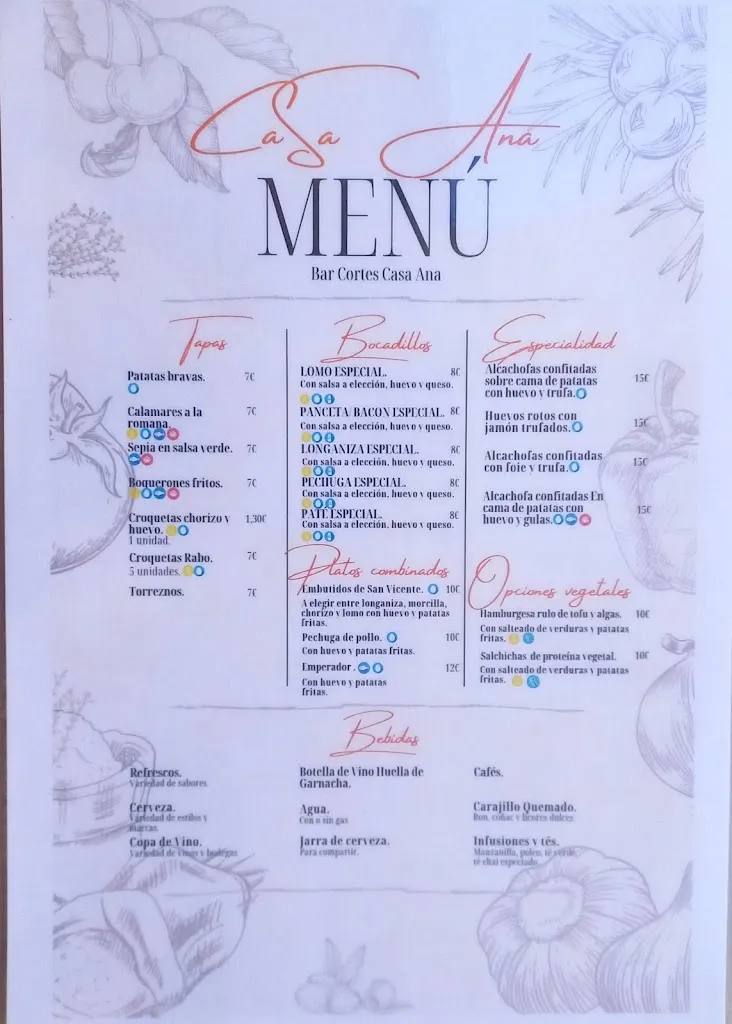 CaSa Ana
MENÚ
Bar Cortes Casa Ana
Tapas
Patatas bravas. 7€
Calamares a la 7€
romana.
Sepia en salsa verde. 7€
Boquerones fritos. 7€
Croquetas chorizo y 1,30€
huevo.
1 unidad.
Croquetas Rabo. 7€
5 unidades.
Torreznos. 7€
Bocadillos
LOMO ESPECIAL. 8€
Con salsa a elección, huevo y queso.
PANCETA/BACON ESPECIAL. 8€
Con salsa a elección, huevo y queso.
LONGANIZA ESPECIAL. 8€
Con salsa a elección, huevo y queso.
PECHUGA ESPECIAL. 8€
Con salsa a elección, huevo y queso.
PATÉ ESPECIAL. 8€
Con salsa a elección, huevo y queso.
Platos combinados
Embutidos de San Vicente. 10€
A elegir entre longaniza, morcilla,
chorizo y lomo con huevo y patatas
fritas.
Pechuga de pollo. 10€
Con huevo y patatas fritas.
Emperador. 12€
Con huevo y patatas
fritas.
Especialidad
Alcachofas confitadas 15€
sobre cama de patatas
con huevo y trufa.
Huevos rotos con 15€
jamón trufados.
Alcachofas confitadas 15€
con foie y trufa.
Alcachofa confitadas En 15€
cama de patatas con
huevo y gulas.
Opciones vegetales
Hamburgesa rulo de tofu y algas. 10€
Con salteado de verduras y patatas
fritas.
Salchichas de proteína vegetal. 10€
Con salteado de verduras y patatas
fritas.
Bebidas
Refrescos.
Variedad de sabores
Cerveza.
Variedad de estilos y
marcas.
Copa de Vino.
Variedad de vinos y bodegas
Botella de Vino Huella de
Garnacha.
Agua.
Con o sin gas
Jarra de cerveza.
Para compartir.
Cafés.
Carajillo Quemado.
Ron, coñac y licores dulces
Infusiones y tés.
Manzanilla, poleo, té verde,
té chai especiado.